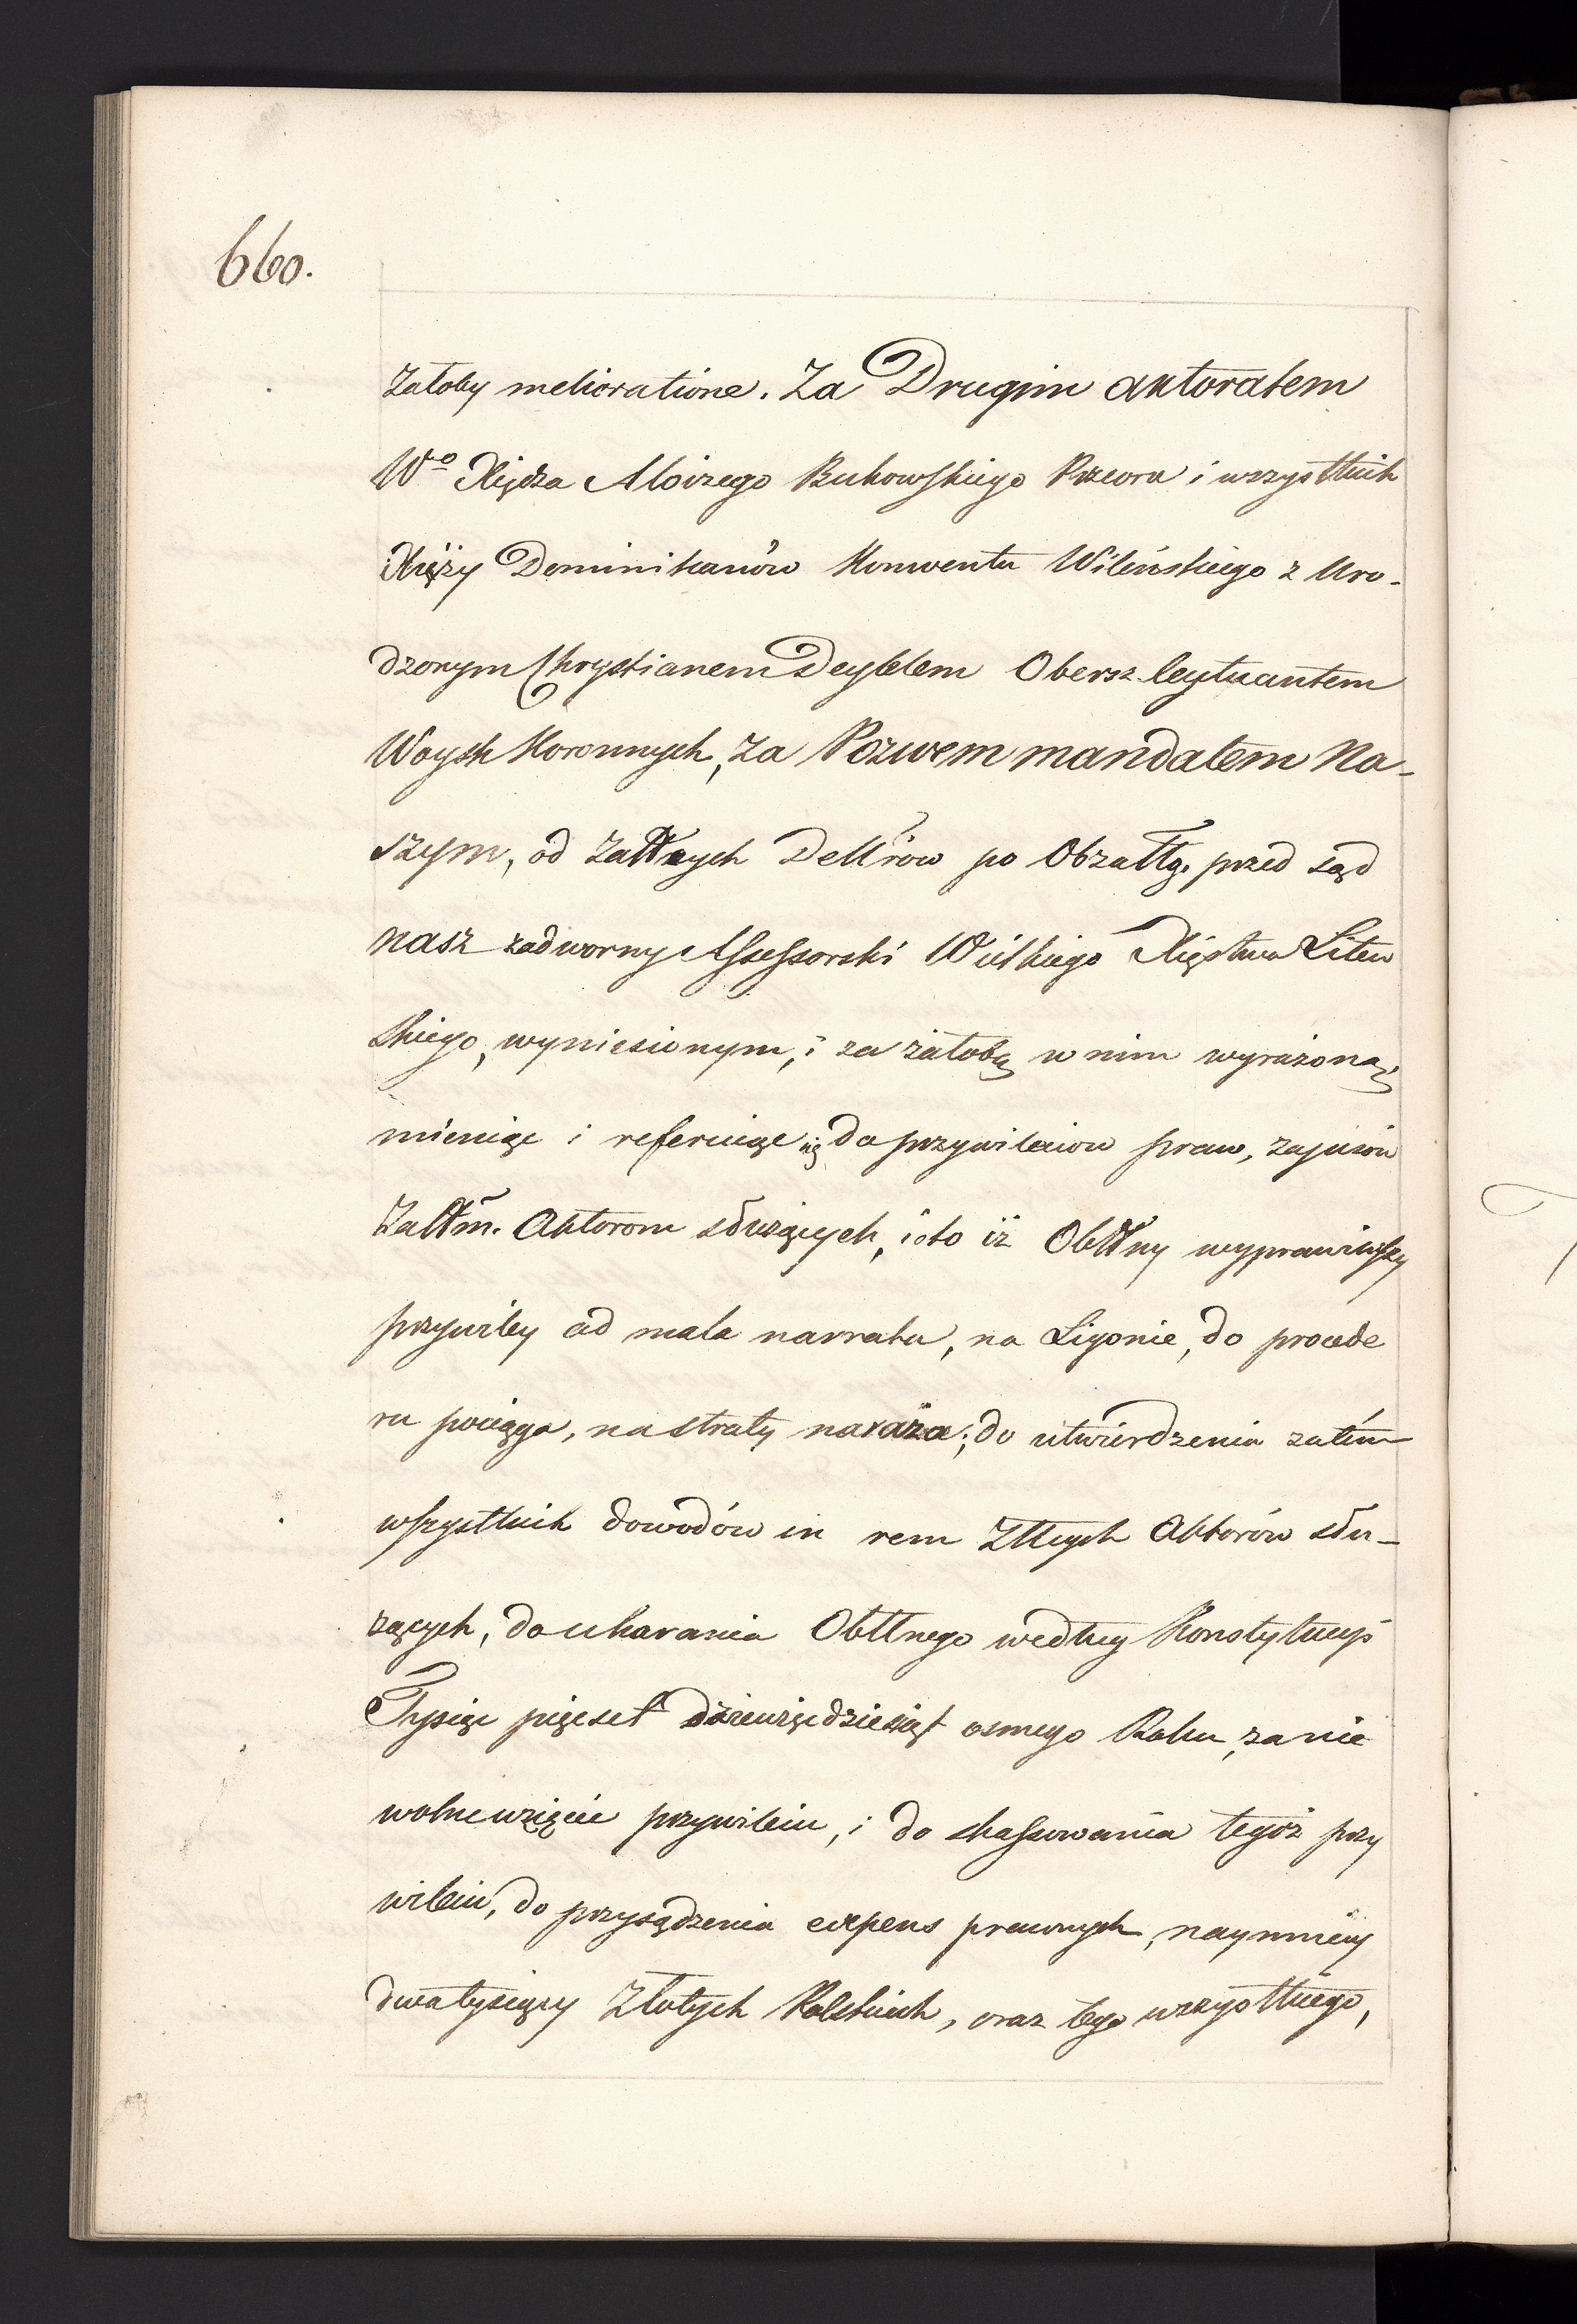 660.
żałoby melioratione. Za Drugim aktoratem
Wº Xiędza Aloizego Bukowskiego Przeora i wszystkich
Xięży Dominikanów Konwentu Wileńskiego z Uro-
dzonym Chrystianem Deyblem Obersz leytnantem
Woysk Koronnych, za Pozwem mandatem Na-
szym, od Załłnych Delłrów po Obżałłg. przed sąd
nasz zadworny Assessorski Wielkiego Xięstwa Litew
skiego, wyniesionym, i za żałobą w nim wyrażoną,
mieniąc i referuiąc się do przywileiow praw, zapisów
Załłm. Aktorom służących, i oto iż Obłłny wyprawiwszy
przywiley ad mala narrata, na Ligonie, do procede
ru pociąga, na straty naraża; do utwierdzenia zatém
wszystkich dowodów in rem Żłłnych Aktorów słu-
żących, do ukarania Obłłnego według Konstytucyi
Tysiąc pięćset dziewięćdziesiąt osmego Roku, za nie
wolne wzięcie przywileiu, i do skassowania tegóż przy
wileiu, do przysądzenia expens prawnych, naymniey
dwa tysięcy Złotych Polskich, oraz tego wszystkiego,